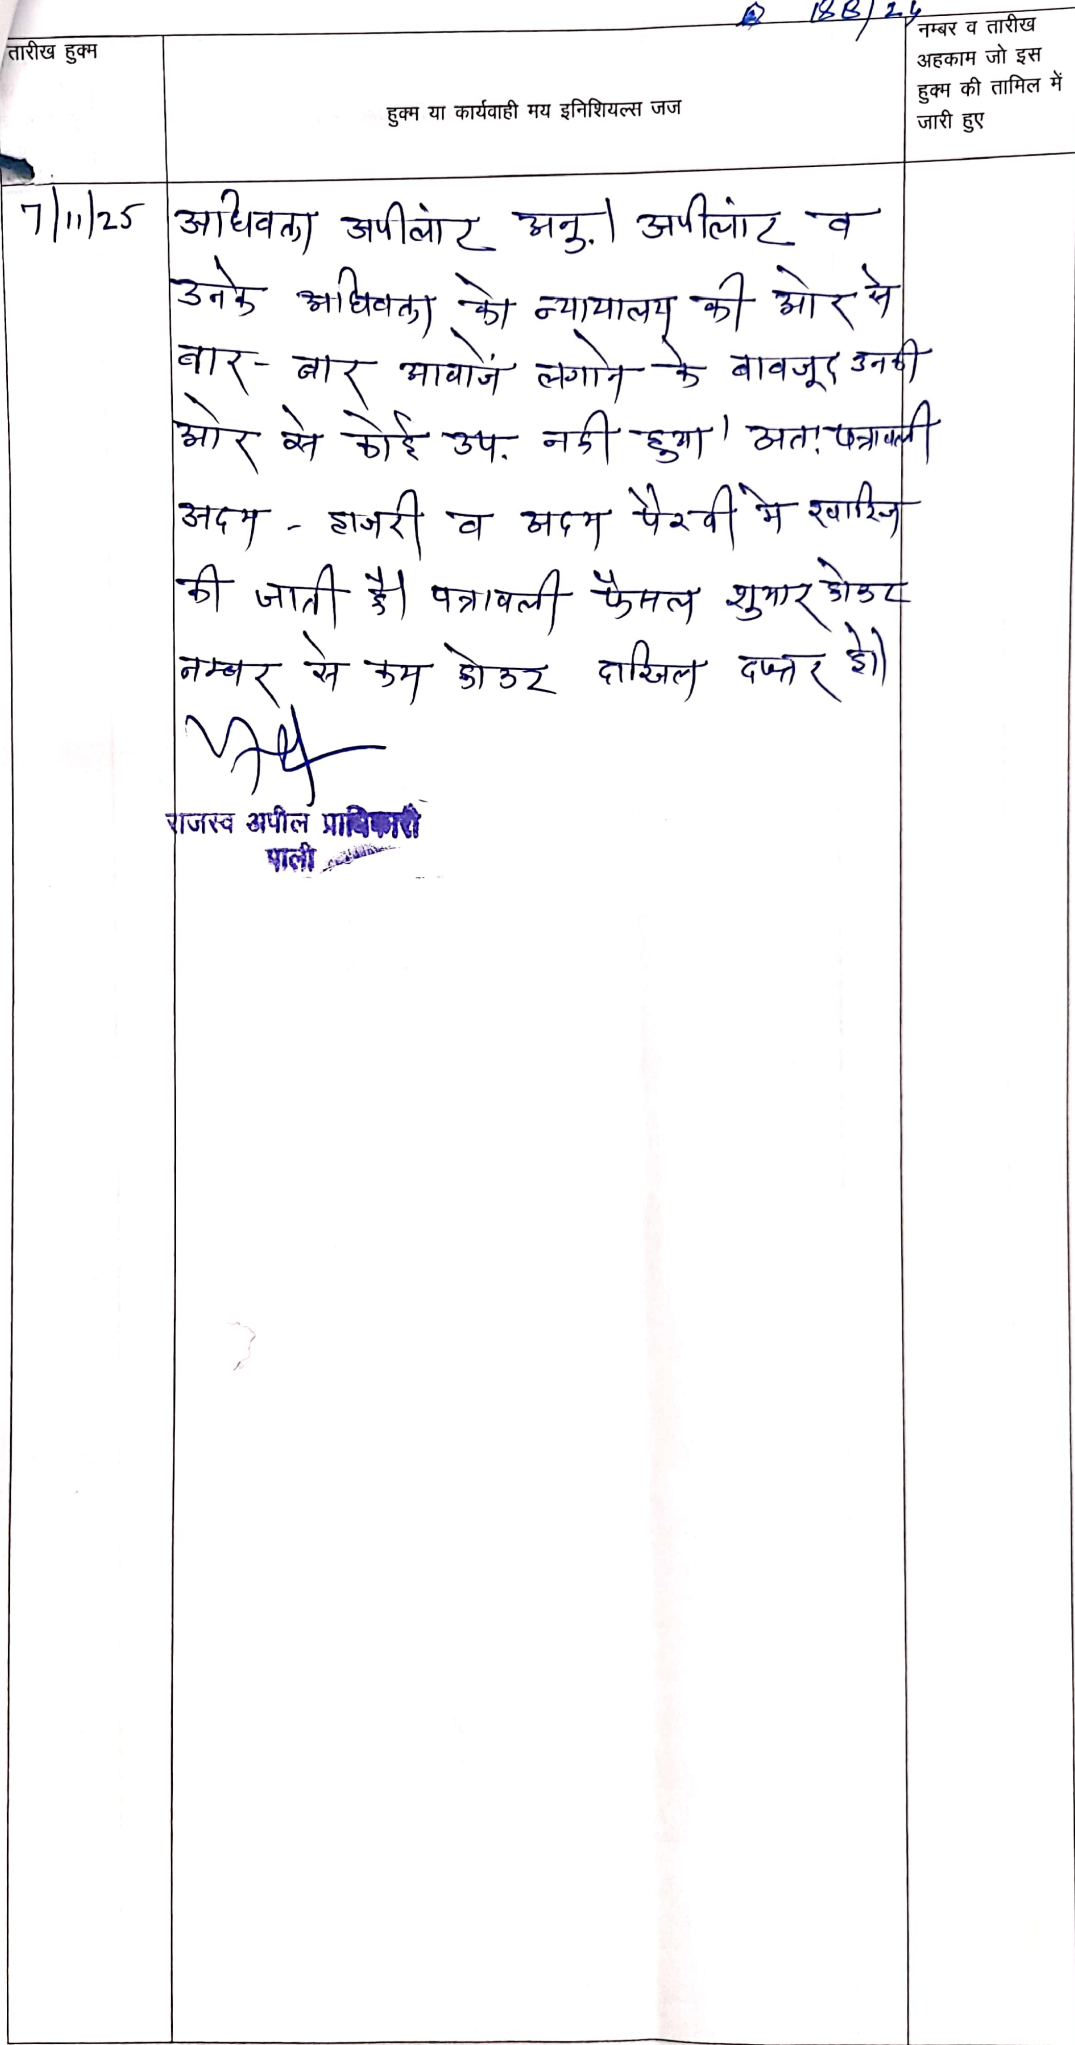 188/24
तारीख हुक्म
हुक्म या कार्यवाही मय इनिशियल्स जज
नम्बर व तारीख
अहकाम जो इस
हुक्म की तामिल में
जारी हुए
7/11/25
अधिवक्ता अपीलांट अनु.। अपीलांट व
उनके अधिवक्ता को न्यायालय की ओर से
बार-बार आवाजें लगाने के बावजूद उनकी
ओर से कोई उप. नही हुआ। अतः पत्रावली
अदम - हाजरी व अदम पैरवी मे खारिज
की जाती है। पत्रावली फैसल शुमार होकर
नम्बर से कम होकर दाखिल दफ्तर हो।
राजस्व अपील प्राधिकारी
पाली